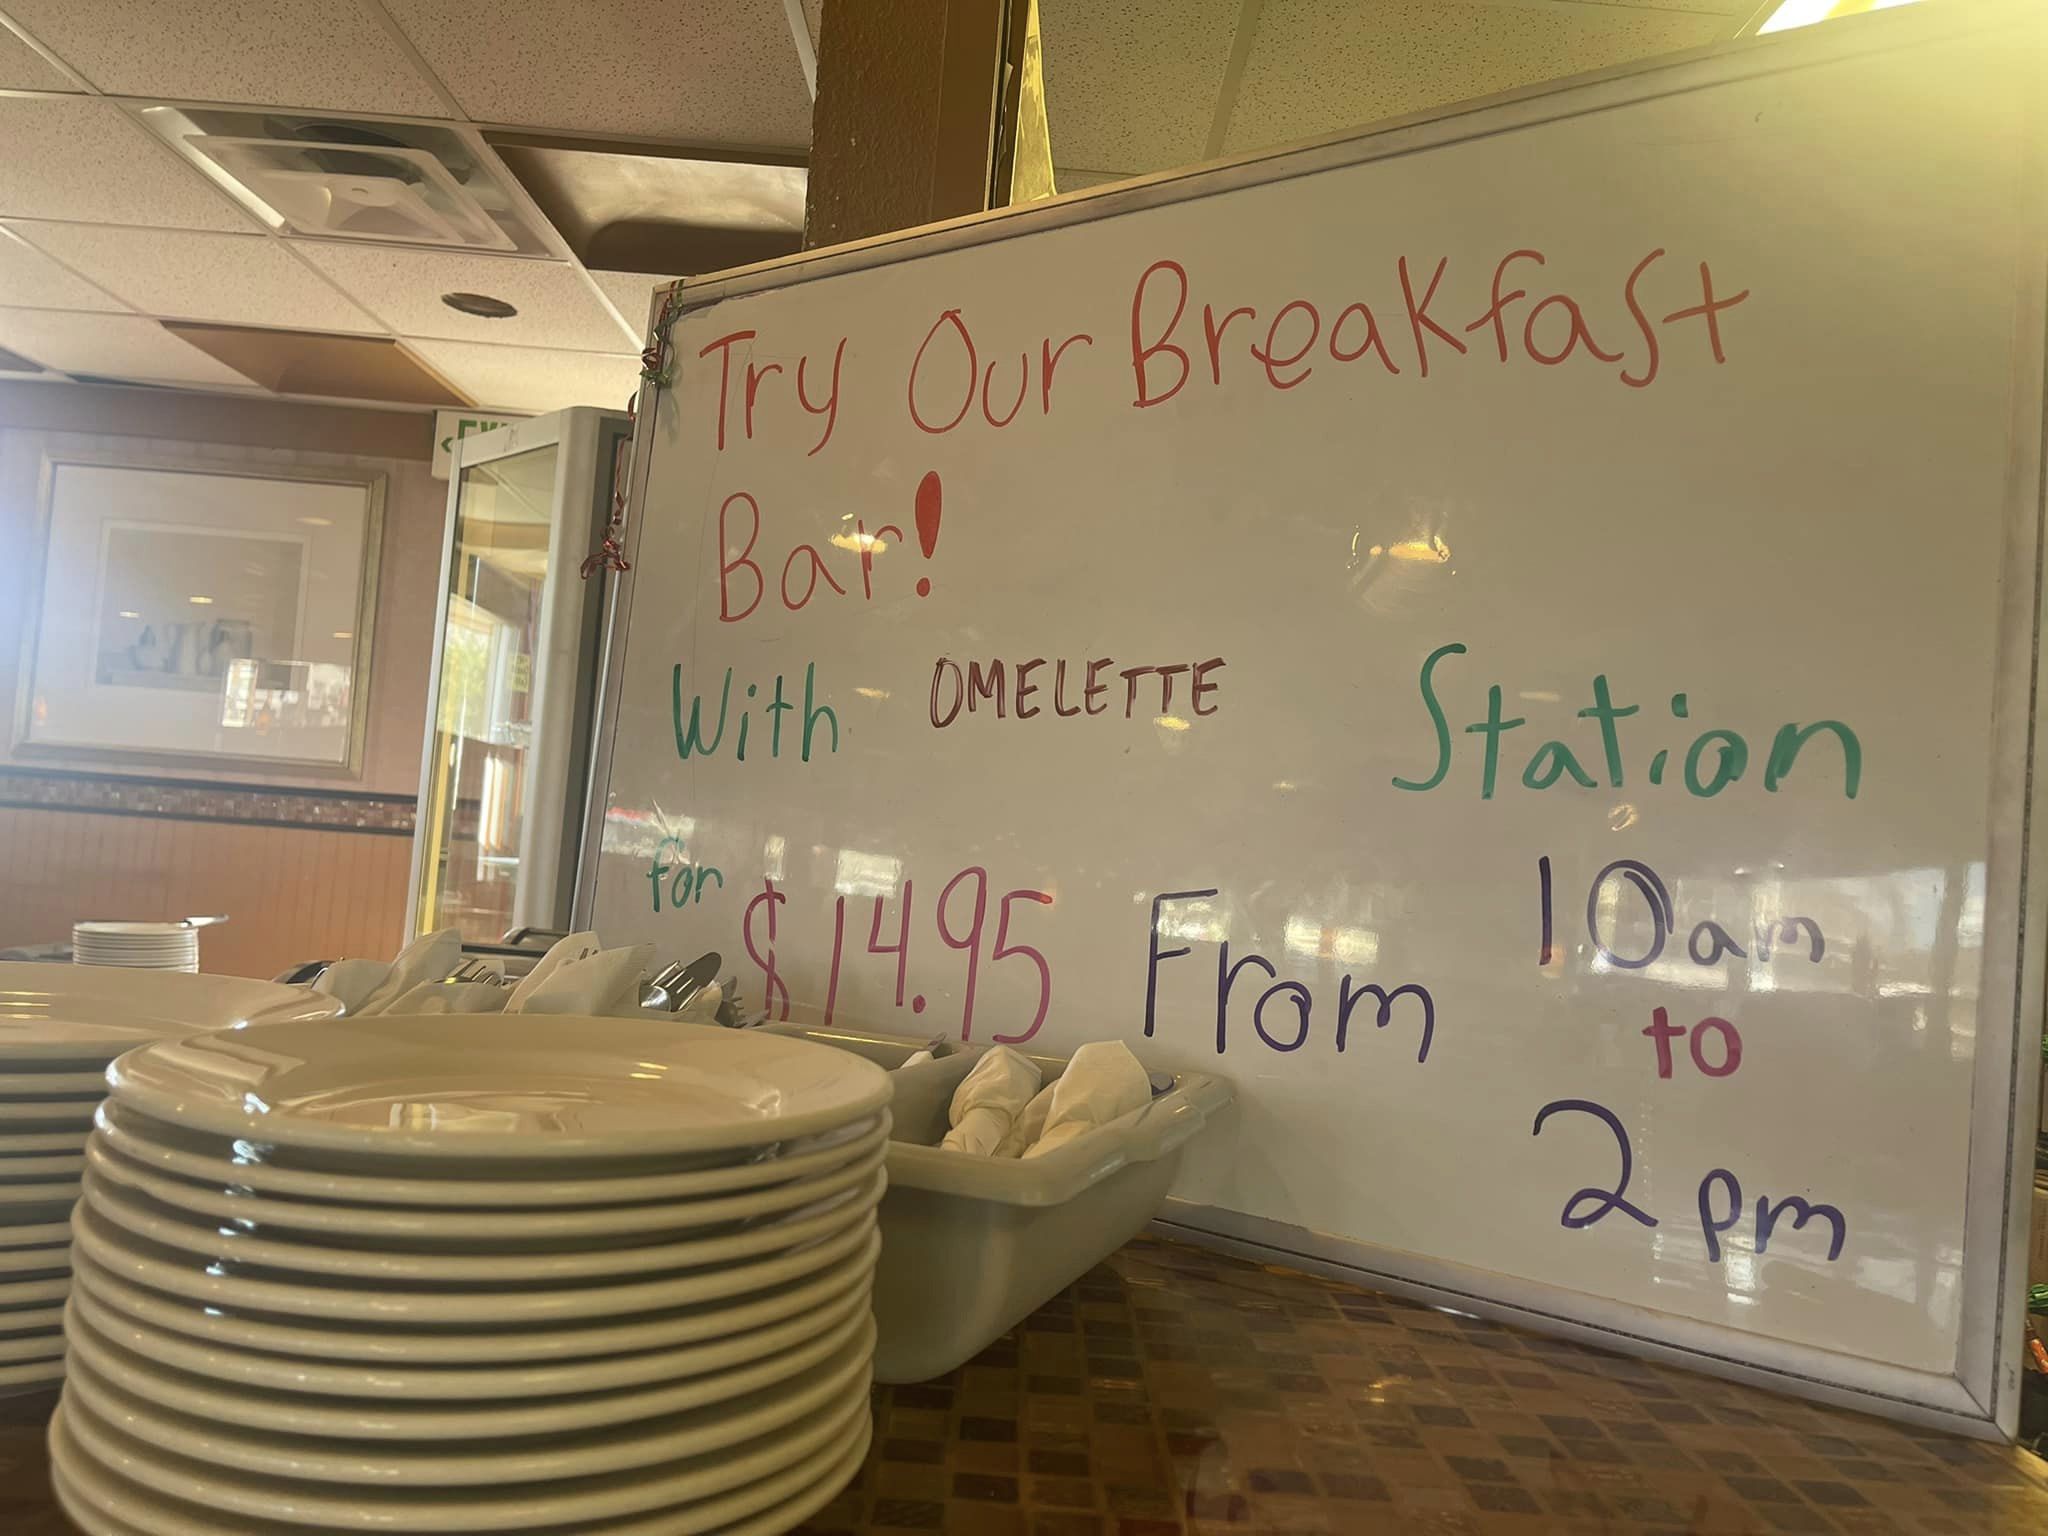 Try Our Breakfast
Bar!
With OMELETTE Station
for $14.95 From 10am
to
2pm